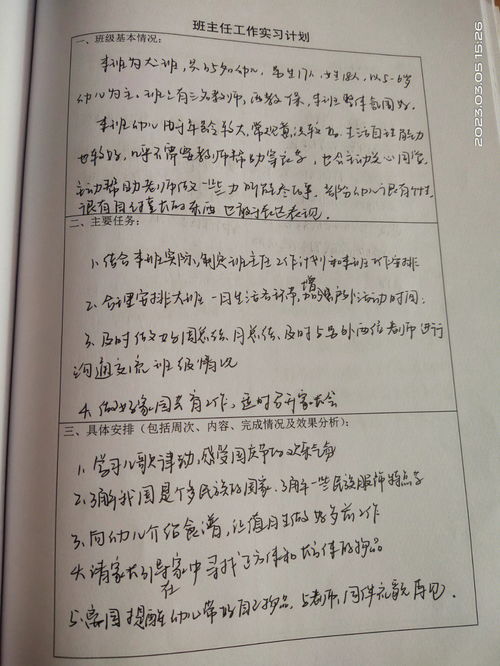 班主任工作实习计划
一、班级基本情况:
本班为大班,共35名幼儿,男生17人,女生18人,以5-6岁
幼儿为主。班上有三名教师,两教一保,本班整体氛围好。
本班幼儿由于年龄较大,常规意识较好。生活自理能力
也较好,几乎不需要教师帮助穿衣等,也会主动关心同学,
主动帮助老师做一些力所能及的事。部分幼儿很有个性,
很有自己喜欢的东西也敢于去表现。
二、主要任务:
1、结合本班实际,制定班主任工作计划和本班工作安排
2、合理安排大班一日生活各环节,增加户外活动时间;
3、及时做好周总结、月总结,及时与另外两位老师进行
沟通交流班级情况
4、做好家园共育工作,适时召开家长会
三、具体安排(包括周次、内容、完成情况及效果分析):
1、学习儿歌律动,感受国庆节的欢乐气氛
2、了解我国是个多民族的国家,了解一些民族服饰特点等
3、向幼儿介绍食谱,让值日生做好餐前工作
4、请家长引导在家中寻找正方体和长方体的物品
5、离园提醒幼儿带好自己物品,与老师、同伴礼貌再见。
2023.03.05 15:26